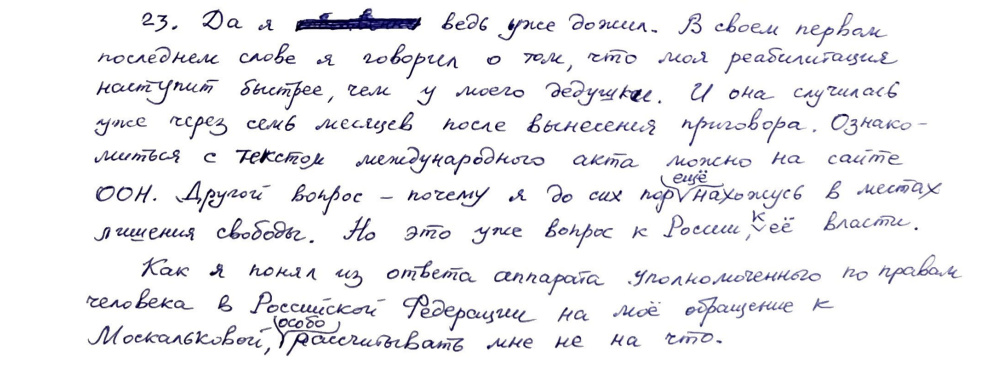 23. Да я ведь уже дожил. В своем первом
последнем слове я говорил о том, что моя реабилитация
наступит быстрее, чем у моего дедушки. И она случилась
уже через семь месяцев после вынесения приговора. Ознако-
миться с текстом международного акта можно на сайте
ООН. Другой вопрос – почему я до сих пор ещё нахожусь в местах
лишения свободы. Но это уже вопрос к России, к её власти.
Как я понял из ответа аппарата Уполномоченного по правам
человека в Российской Федерации на моё обращение к
Москальковой, особо рассчитывать мне не на что.